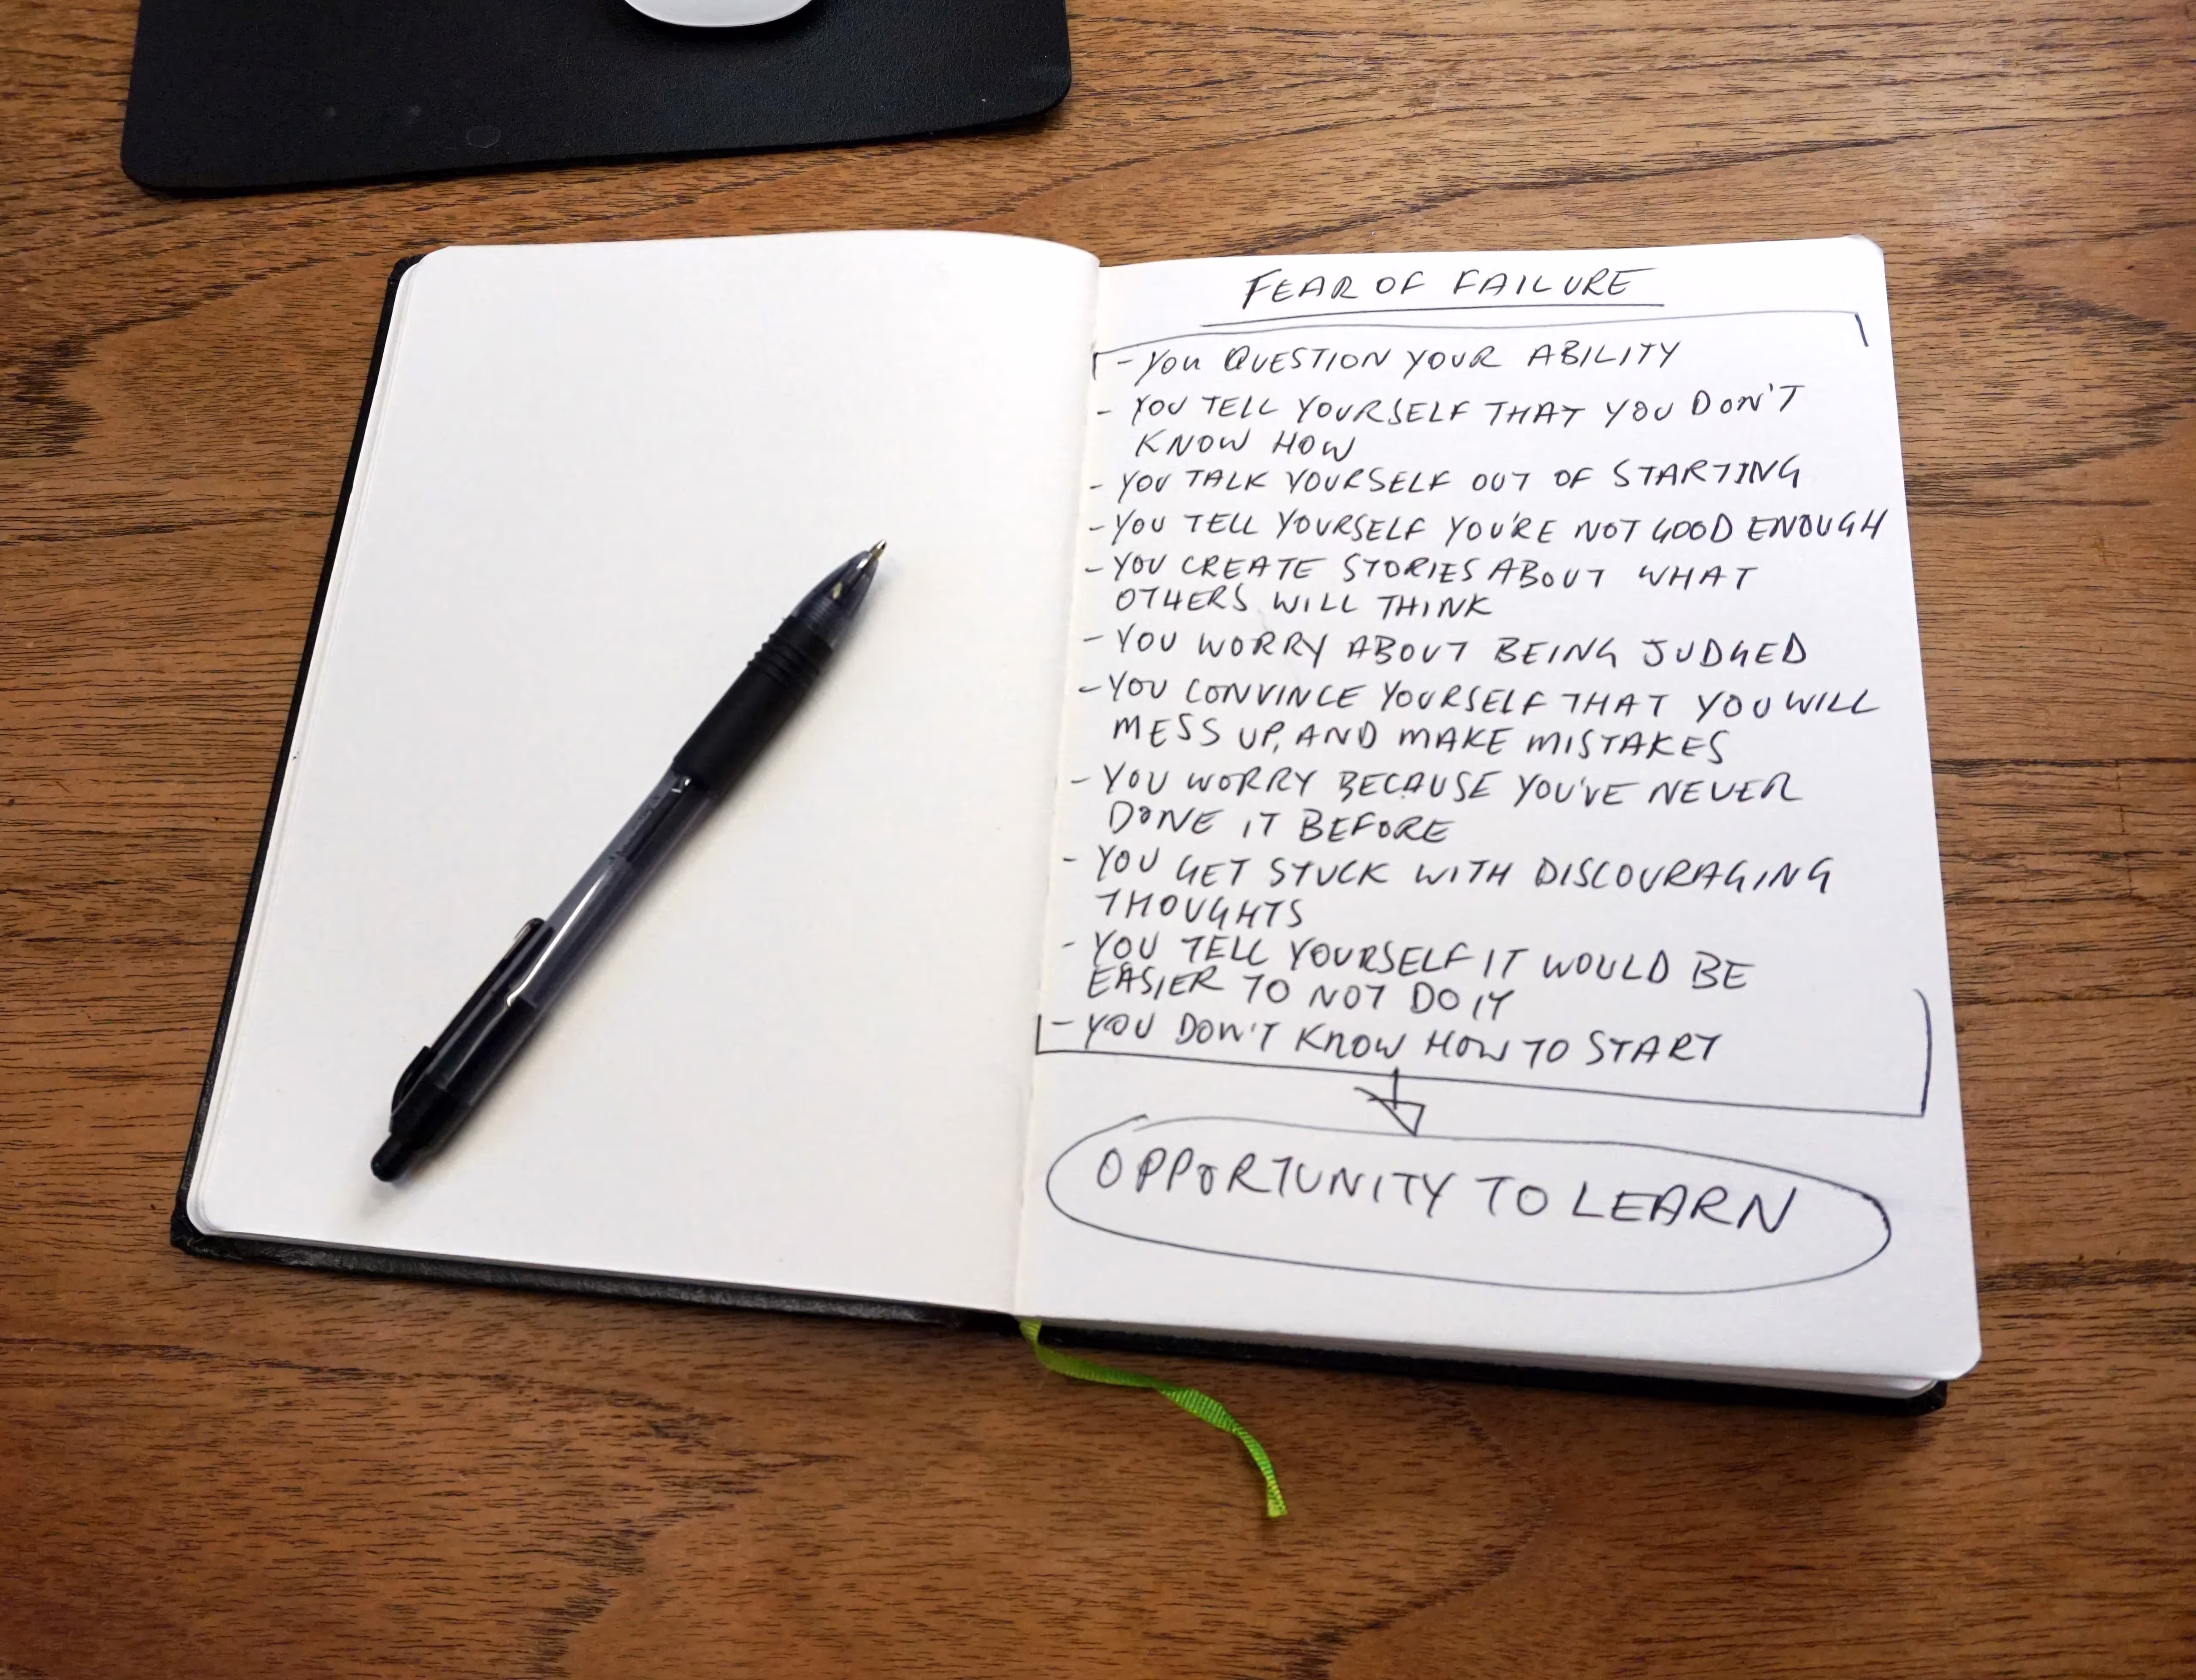 FEAR OF FAILURE
- YOU QUESTION YOUR ABILITY
- YOU TELL YOURSELF THAT YOU DON'T
KNOW HOW
- YOU TALK YOURSELF OUT OF STARTING
- YOU TELL YOURSELF YOU'RE NOT GOOD ENOUGH
- YOU CREATE STORIES ABOUT WHAT
OTHERS WILL THINK
- YOU WORRY ABOUT BEING JUDGED
- YOU CONVINCE YOURSELF THAT YOU WILL
MESS UP, AND MAKE MISTAKES
- YOU WORRY BECAUSE YOU'VE NEVER
DONE IT BEFORE
- YOU GET STUCK WITH DISCOURAGING
THOUGHTS
- YOU TELL YOURSELF IT WOULD BE
EASIER TO NOT DO IT
- YOU DON'T KNOW HOW TO START
OPPORTUNITY TO LEARN